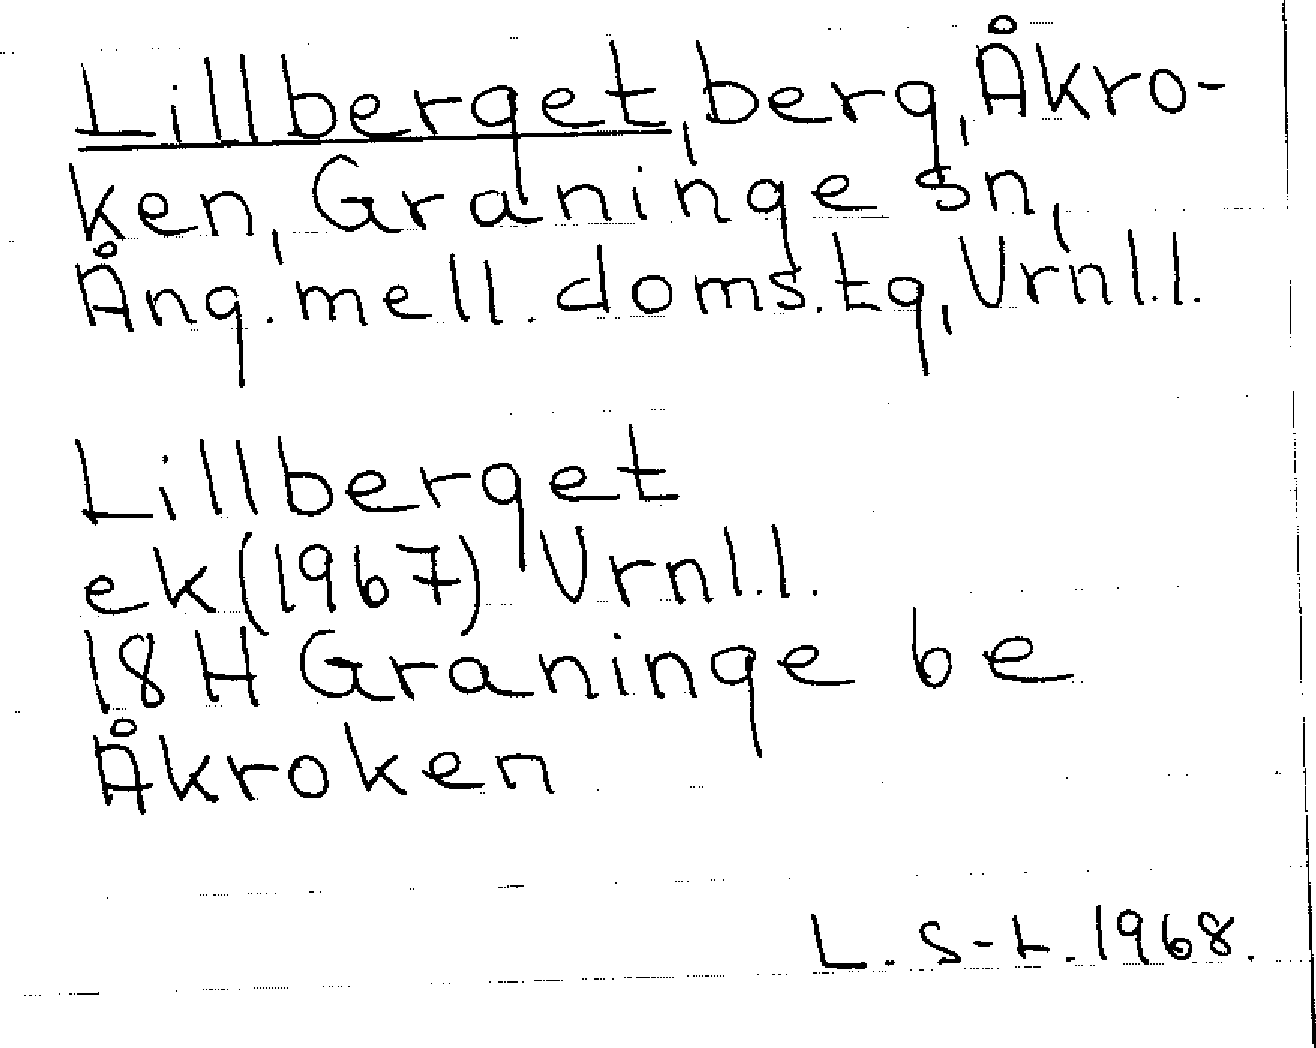 Lillberget, berg, Åkro-
ken, Graninge sn,
Ång. mell. doms. tg, Vrnl.l.
Lillberget
ek (1967) Vrnl.l.
18 H Graninge be
Åkroken
L. S-t. 1968.